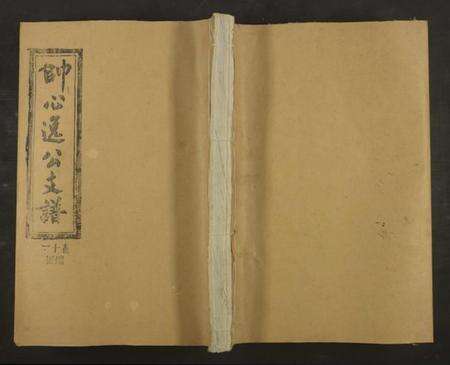 帥心逸公支譜